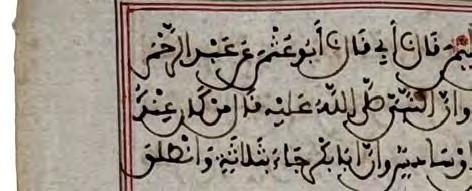 قال أبي قال أبو عثمن عن عبد الرحمن
وان النبي صلى الله عليه قال من كان عنده
او سادس وان ابا بكر جاء بثلاثة وانطلق